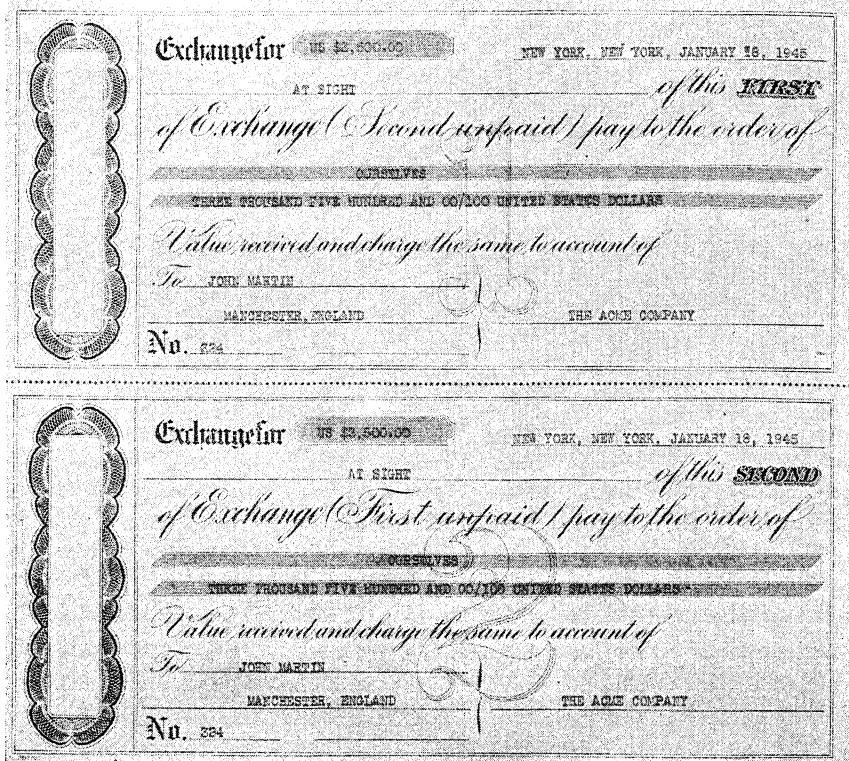 Exchange for US $3,500.00 NEW YORK, NEW YORK, JANUARY 18, 1945
AT SIGHT of this FIRST
of Exchange (Second unpaid) pay to the order of
OURSELVES
THREE THOUSAND FIVE HUNDRED AND 00/100 UNITED STATES DOLLARS
Value received and charge the same to account of
To JOHN MARTIN
MANCHESTER, ENGLAND THE ACME COMPANY
No. 234
Exchange for US $3,500.00 NEW YORK, NEW YORK, JANUARY 18, 1945
AT SIGHT of this SECOND
of Exchange (First unpaid) pay to the order of
OURSELVES
THREE THOUSAND FIVE HUNDRED AND 00/100 UNITED STATES DOLLARS
Value received and charge the same to account of
To JOHN MARTIN
MANCHESTER, ENGLAND THE ACME COMPANY
No. 234